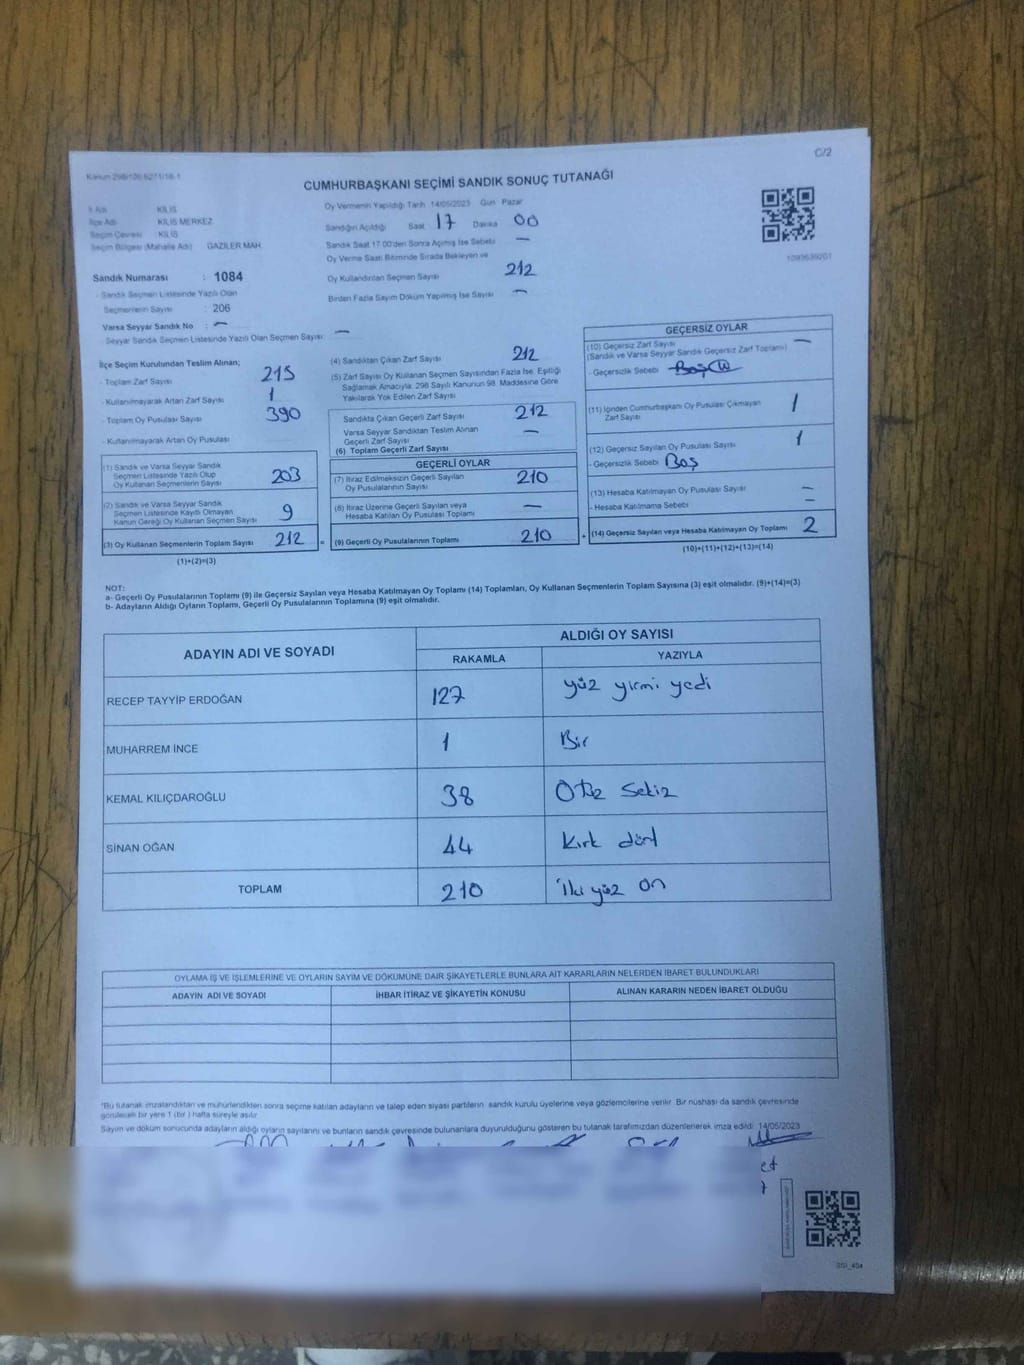 C/2
Kanun 298/105 6271/18-1
CUMHURBAŞKANI SEÇİMİ SANDIK SONUÇ TUTANAĞI
İl Adı KİLİS
İlçe Adı KİLİS MERKEZ
Seçim Çevresi KİLİS
Seçim Bölgesi (Mahalle Adı) GAZİLER MAH.
Sandık Numarası : 1084
- Sandık Seçmen Listesinde Yazılı Olan
Seçmenlerin Sayısı : 206
Varsa Seyyar Sandık No : —
- Seyyar Sandık Seçmen Listesinde Yazılı Olan Seçmen Sayısı : —
Oy Vermenin Yapıldığı Tarih 14/05/2023 Gün Pazar
Sandığın Açıldığı Saat 17 Dakika 00
Sandık Saat 17.00'den Sonra Açılmış İse Sebebi —
Oy Verme Saati Bitiminde Sırada Bekleyen ve
Oy Kullandırılan Seçmen Sayısı 212
Birden Fazla Sayım Döküm Yapılmış İse Sayısı —
1089639201
İlçe Seçim Kurulundan Teslim Alınan;
- Toplam Zarf Sayısı 215
- Kullanılmayarak Artan Zarf Sayısı 1
- Toplam Oy Pusulası Sayısı 390
- Kullanılmayarak Artan Oy Pusulası
(1) Sandık ve Varsa Seyyar Sandık
Seçmen Listesinde Yazılı Olup
Oy Kullanan Seçmenlerin Sayısı 203
(2) Sandık ve Varsa Seyyar Sandık
Seçmen Listesinde Kayıtlı Olmayan
Kanun Gereği Oy Kullanan Seçmen Sayısı 9
(3) Oy Kullanan Seçmenlerin Toplam Sayısı 212 =
(1)+(2)=(3)
(4) Sandıktan Çıkan Zarf Sayısı 212
(5) Zarf Sayısı Oy Kullanan Seçmen Sayısından Fazla İse, Eşitliği
Sağlamak Amacıyla, 298 Sayılı Kanunun 98. Maddesine Göre
Yakılarak Yok Edilen Zarf Sayısı
Sandıkta Çıkan Geçerli Zarf Sayısı 212
Varsa Seyyar Sandıktan Teslim Alınan —
Geçerli Zarf Sayısı
(6) Toplam Geçerli Zarf Sayısı
GEÇERLİ OYLAR
(7) İtiraz Edilmeksizin Geçerli Sayılan
Oy Pusulalarının Sayısı 210
(8) İtiraz Üzerine Geçerli Sayılan veya
Hesaba Katılan Oy Pusulası Toplamı —
(9) Geçerli Oy Pusulalarının Toplamı 210 +
GEÇERSİZ OYLAR
(10) Geçersiz Zarf Sayısı —
(Sandık ve Varsa Seyyar Sandık Geçersiz Zarf Toplamı)
- Geçersizlik Sebebi
(11) İçinden Cumhurbaşkanı Oy Pusulası Çıkmayan
Zarf Sayısı 1
(12) Geçersiz Sayılan Oy Pusulası Sayısı 1
- Geçersizlik Sebebi Boş
(13) Hesaba Katılmayan Oy Pusulası Sayısı —
- Hesaba Katılmama Sebebi —
(14) Geçersiz Sayılan veya Hesaba Katılmayan Oy Toplamı 2
(10)+(11)+(12)+(13)=(14)
NOT:
a- Geçerli Oy Pusulalarının Toplamı (9) ile Geçersiz Sayılan veya Hesaba Katılmayan Oy Toplamı (14) Toplamları, Oy Kullanan Seçmenlerin Toplam Sayısına (3) eşit olmalıdır. (9)+(14)=(3)
b- Adayların Aldığı Oyların Toplamı, Geçerli Oy Pusulalarının Toplamına (9) eşit olmalıdır.
ADAYIN ADI VE SOYADI ALDIĞI OY SAYISI
RAKAMLA YAZIYLA
RECEP TAYYİP ERDOĞAN 127 yüz yirmi yedi
MUHARREM İNCE 1 Bir
KEMAL KILIÇDAROĞLU 38 Otuz sekiz
SİNAN OĞAN 44 Kırk dört
TOPLAM 210 İki yüz on
OYLAMA İŞ VE İŞLEMLERİNE VE OYLARIN SAYIM VE DÖKÜMÜNE DAİR ŞİKAYETLERLE BUNLARA AİT KARARLARIN NELERDEN İBARET BULUNDUKLARI
ADAYIN ADI VE SOYADI İHBAR İTİRAZ VE ŞİKAYETİN KONUSU ALINAN KARARIN NEDEN İBARET OLDUĞU
*Bu tutanak imzalandıktan ve mühürlendikten sonra seçime katılan adayların ve talep eden siyasi partilerin sandık kurulu üyelerine veya gözlemcilerine verilir. Bir nüshası da sandık çevresinde
görülecek bir yere 1 (bir) hafta süreyle asılır.
Sayım ve döküm sonucunda adayların aldığı oyların sayılarını ve bunların sandık çevresinde bulunanlara duyurulduğunu gösteren bu tutanak tarafımızdan düzenlenerek imza edildi. 14/05/2023